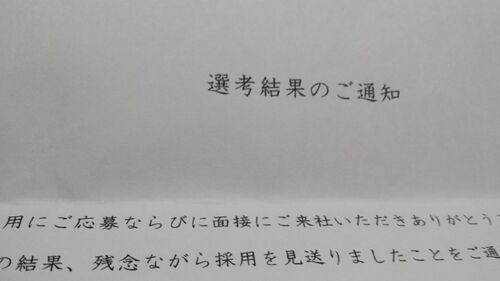 選考結果のご通知
用にご応募ならびに面接にご来社いただきありがとう
の結果、残念ながら採用を見送りましたことをご通